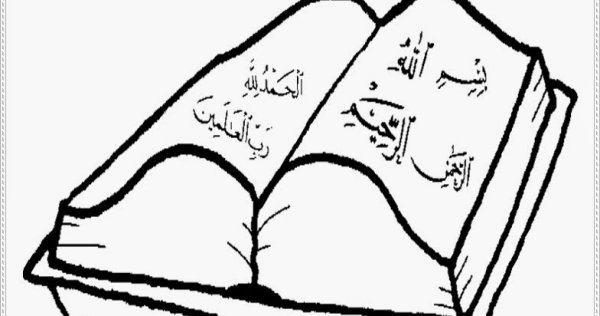 بِسْمِ اللهِ
الرَّحْمٰنِ الرَّحِيْمِ
اَلْحَمْدُ لِلّٰهِ
رَبِّ الْعَالَمِيْنَ